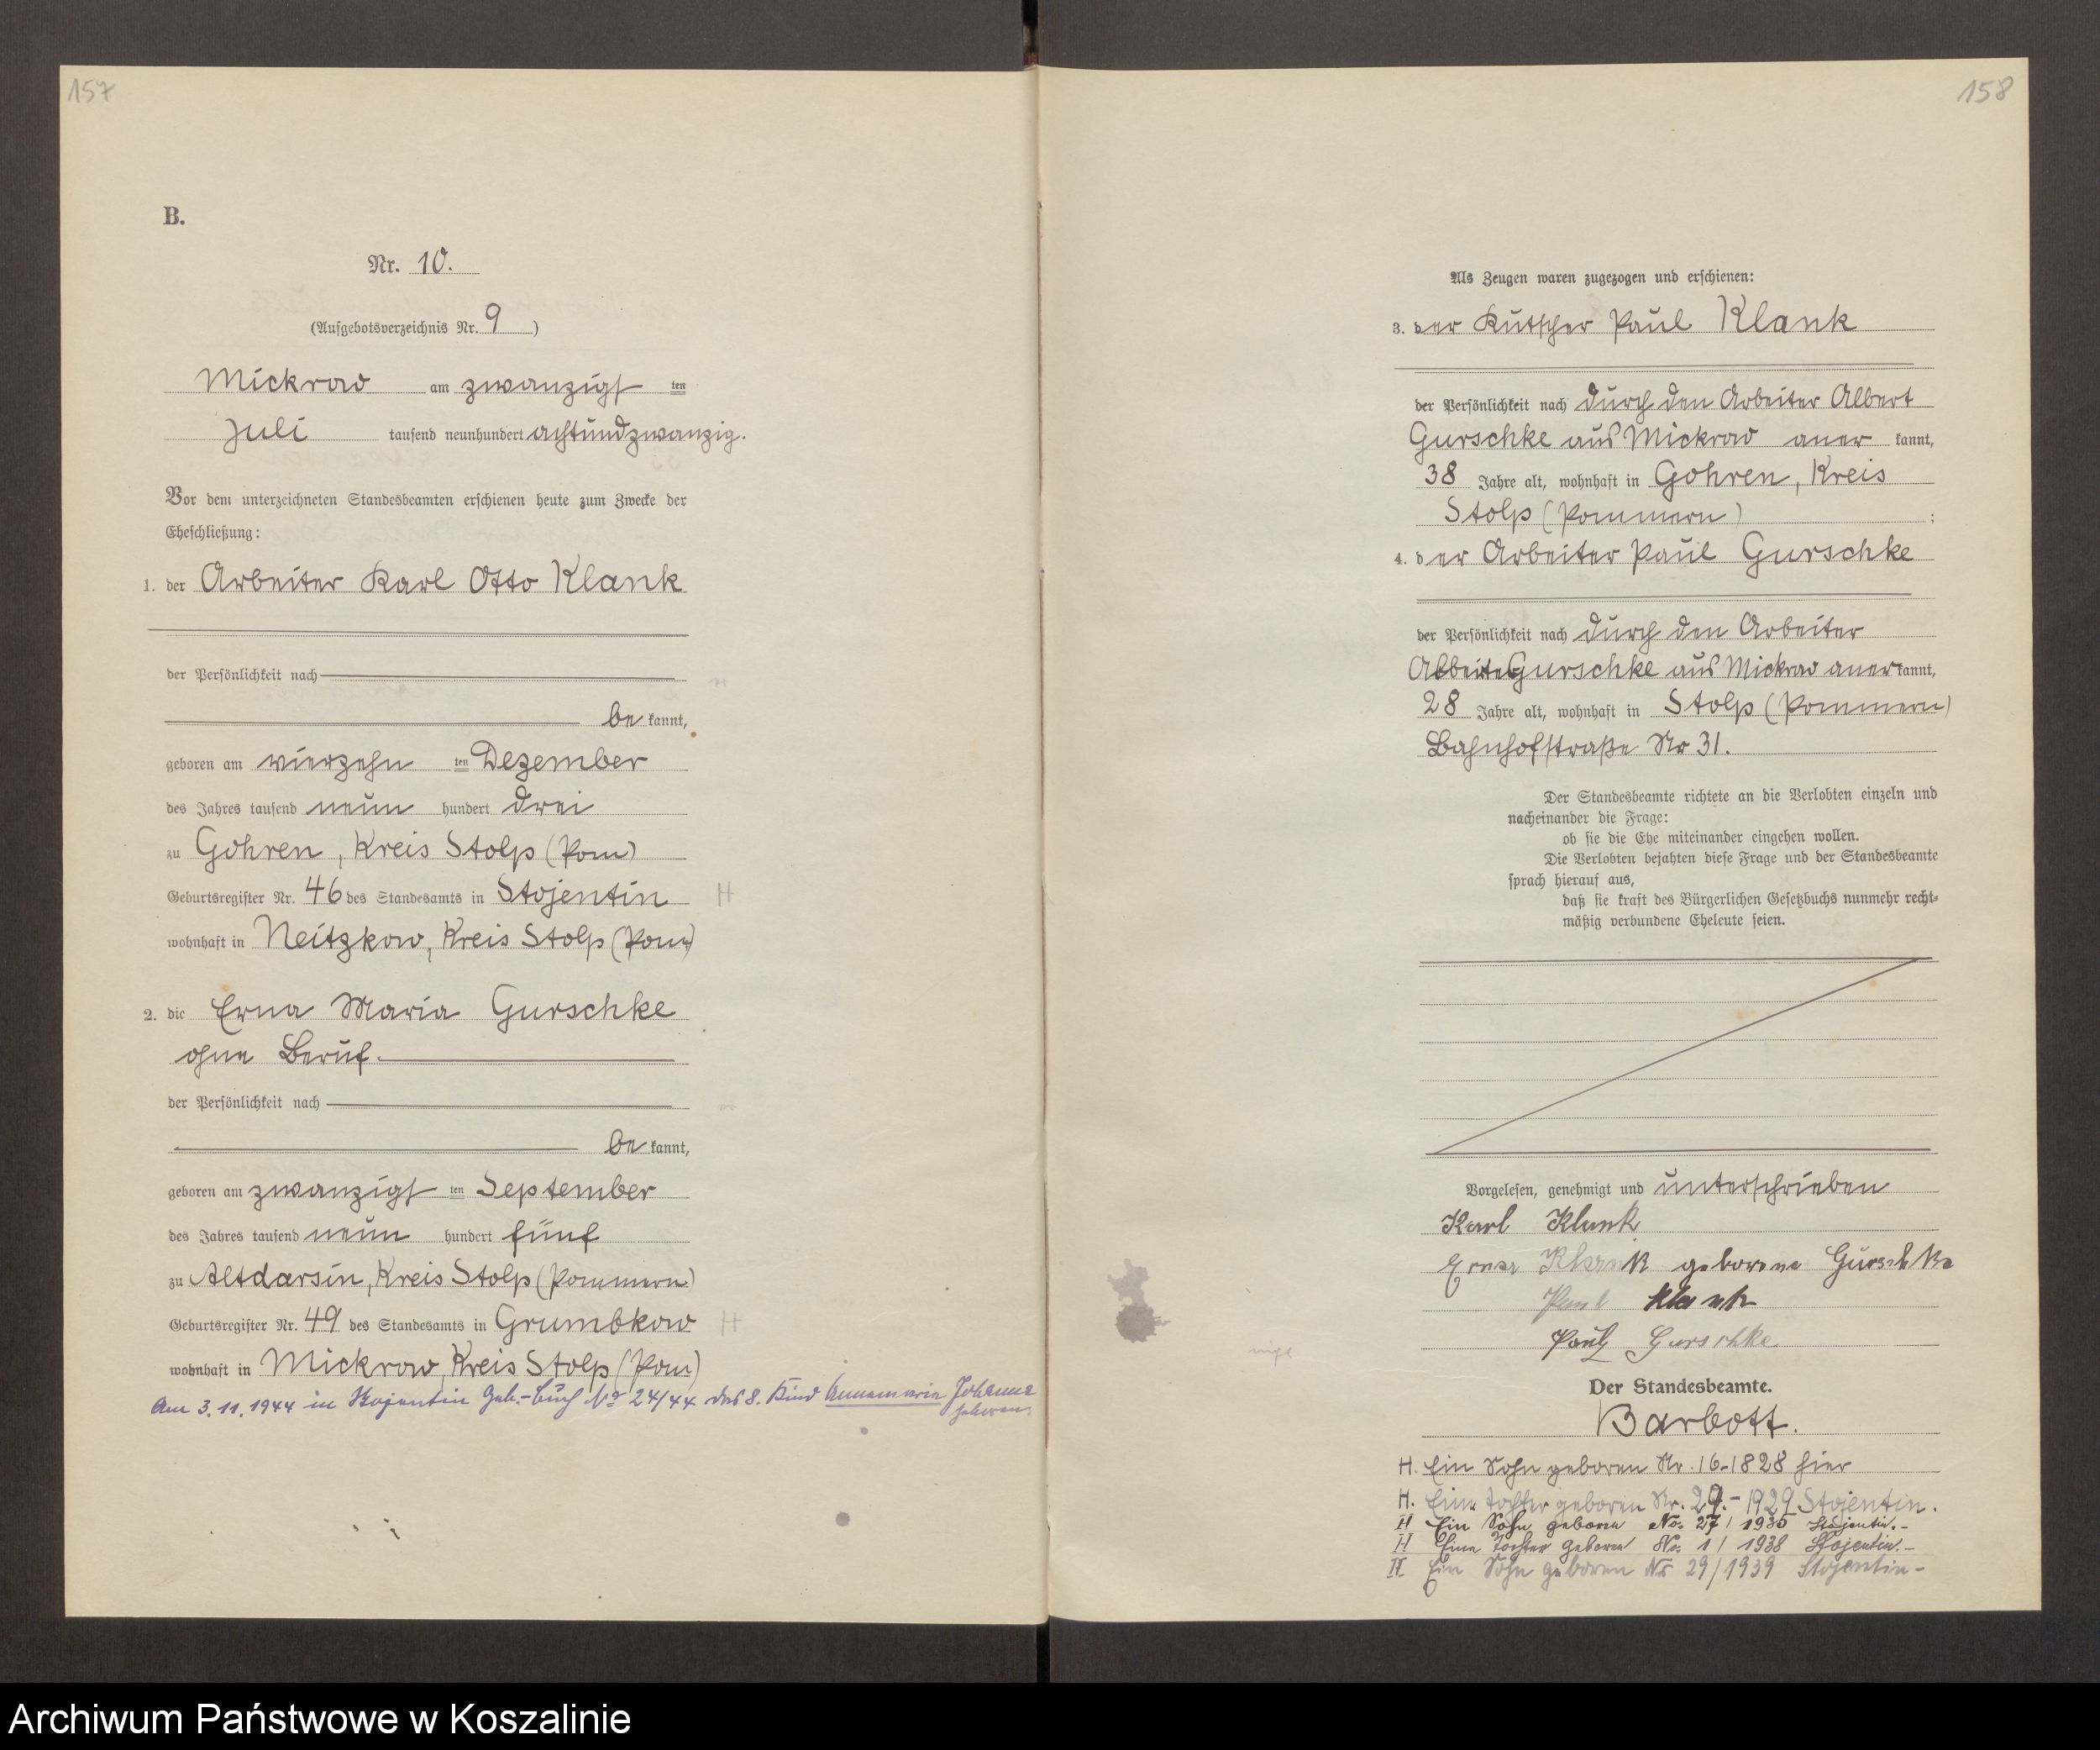 157
B.
Nr. 10.
(Aufgebotsverzeichnis Nr. 9)
Mickrow am zwanzigsten
Juli tausend neunhundert achtundzwanzig.
Vor dem unterzeichneten Standesbeamten erschienen heute zum Zwecke der
Eheschließung:
1. der Arbeiter Karl Otto Klank
der Persönlichkeit nach
bekannt,
geboren am vierzehnten Dezember
des Jahres tausend neun hundert drei
zu Gohren, Kreis Stolp (Pom)
Geburtsregister Nr. 46 des Standesamts in Stojentin H
wohnhaft in Neitzkow, Kreis Stolp (Pom)
2. die Erna Maria Gurschke
ohne Beruf.
der Persönlichkeit nach
bekannt,
geboren am zwanzigsten September
des Jahres tausend neun hundert fünf
zu Altdarsin, Kreis Stolp (Pommern)
Geburtsregister Nr. 49 des Standesamts in Grumbkow H
wohnhaft in Mickrow, Kreis Stolp (Pom)
Am 3.11.1944 in Stojentin Geb.-Buch No 24/44 das 8. Kind Annemarie Johanna
geboren.
158
Als Zeugen waren zugezogen und erschienen:
3. der Kutscher Paul Klank
der Persönlichkeit nach durch den Arbeiter Albert
Gurschke aus Mickrow anerkannt,
38 Jahre alt, wohnhaft in Gohren, Kreis
Stolp (Pommern) ;
4. der Arbeiter Paul Gurschke
der Persönlichkeit nach durch den Arbeiter
Gurschke aus Mickrow anerkannt,
28 Jahre alt, wohnhaft in Stolp (Pommern)
Bahnhofstraße Nr 31.
Der Standesbeamte richtete an die Verlobten einzeln und
nacheinander die Frage:
ob sie die Ehe miteinander eingehen wollen.
Die Verlobten bejahten diese Frage und der Standesbeamte
sprach hierauf aus,
daß sie kraft des Bürgerlichen Gesetzbuchs nunmehr recht-
mäßig verbundene Eheleute seien.
Vorgelesen, genehmigt und unterschrieben
Karl Klank
Erna Klank geborene Gurschke
Paul Klank
Paul Gurschke
Der Standesbeamte.
Barbott.
H. Ein Sohn geboren Nr. 16-1828 hier
H. Eine Tochter geboren Nr. 29.- 1929 Stojentin.
H Ein Sohn geboren No. 27/1935 Stojentin.-
H Eine Tochter geboren No. 1/1938 Stojentin.-
H Ein Sohn geboren Nr 29/1939 Stojentin-
Archiwum Państwowe w Koszalinie